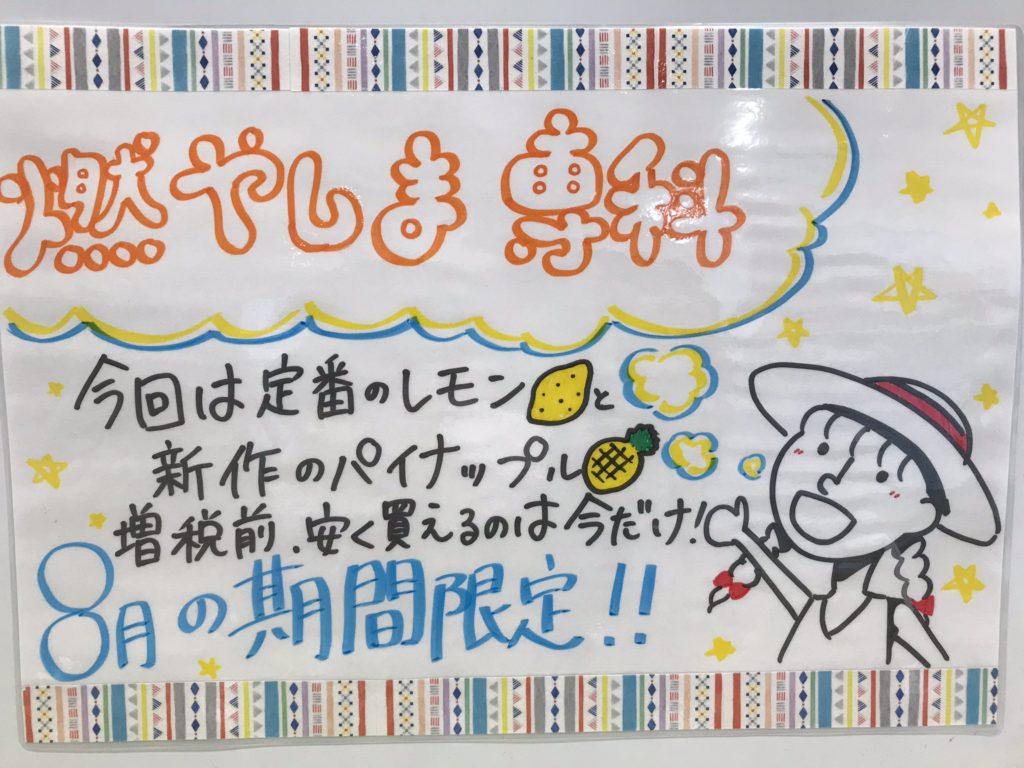 燃やしま専科
今回は定番のレモンと
新作のパイナップル
増税前、安く買えるのは今だけ!
8月の期間限定!!